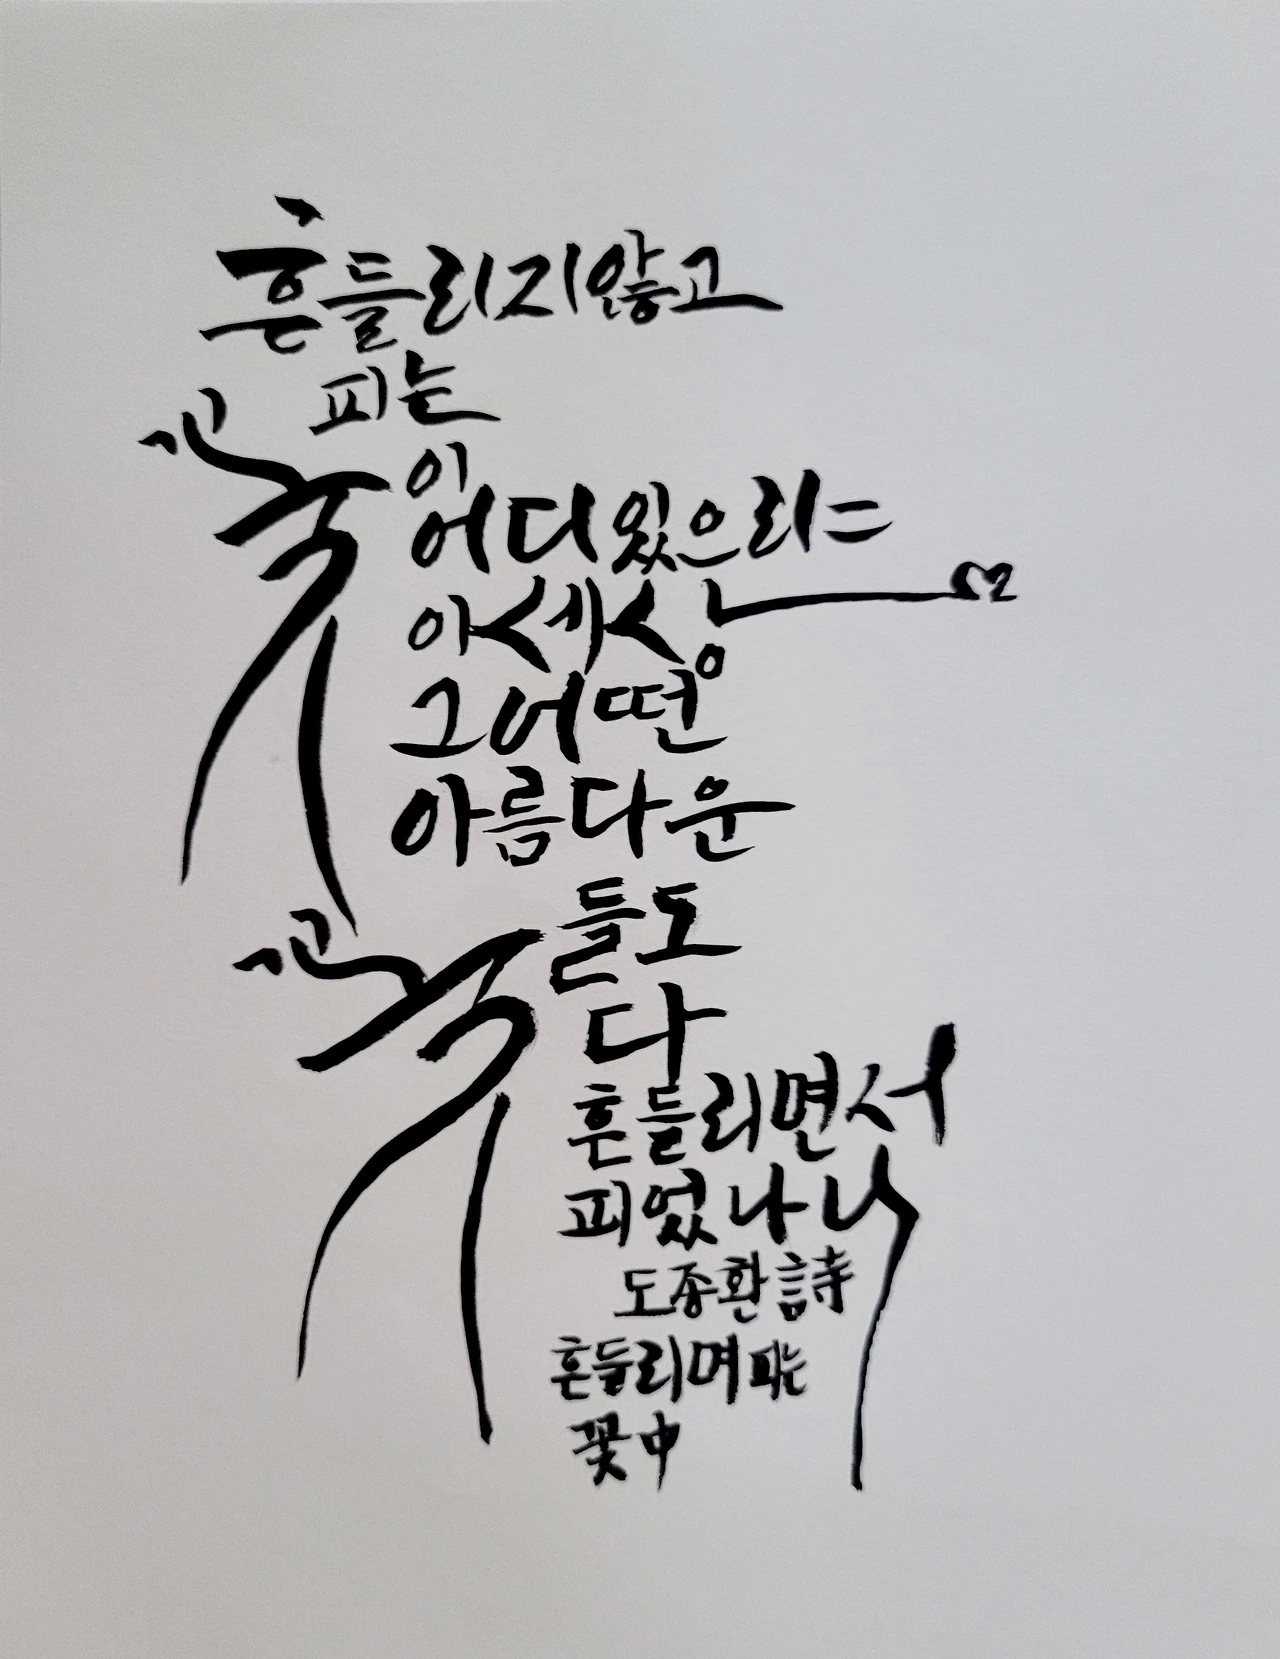 흔들리지않고
피는
꽃이
어디있으랴
이세상
그어떤
아름다운
꽃들도
다
흔들리면서
피었나니
도종환 詩
흔들리며 피는
꽃 中